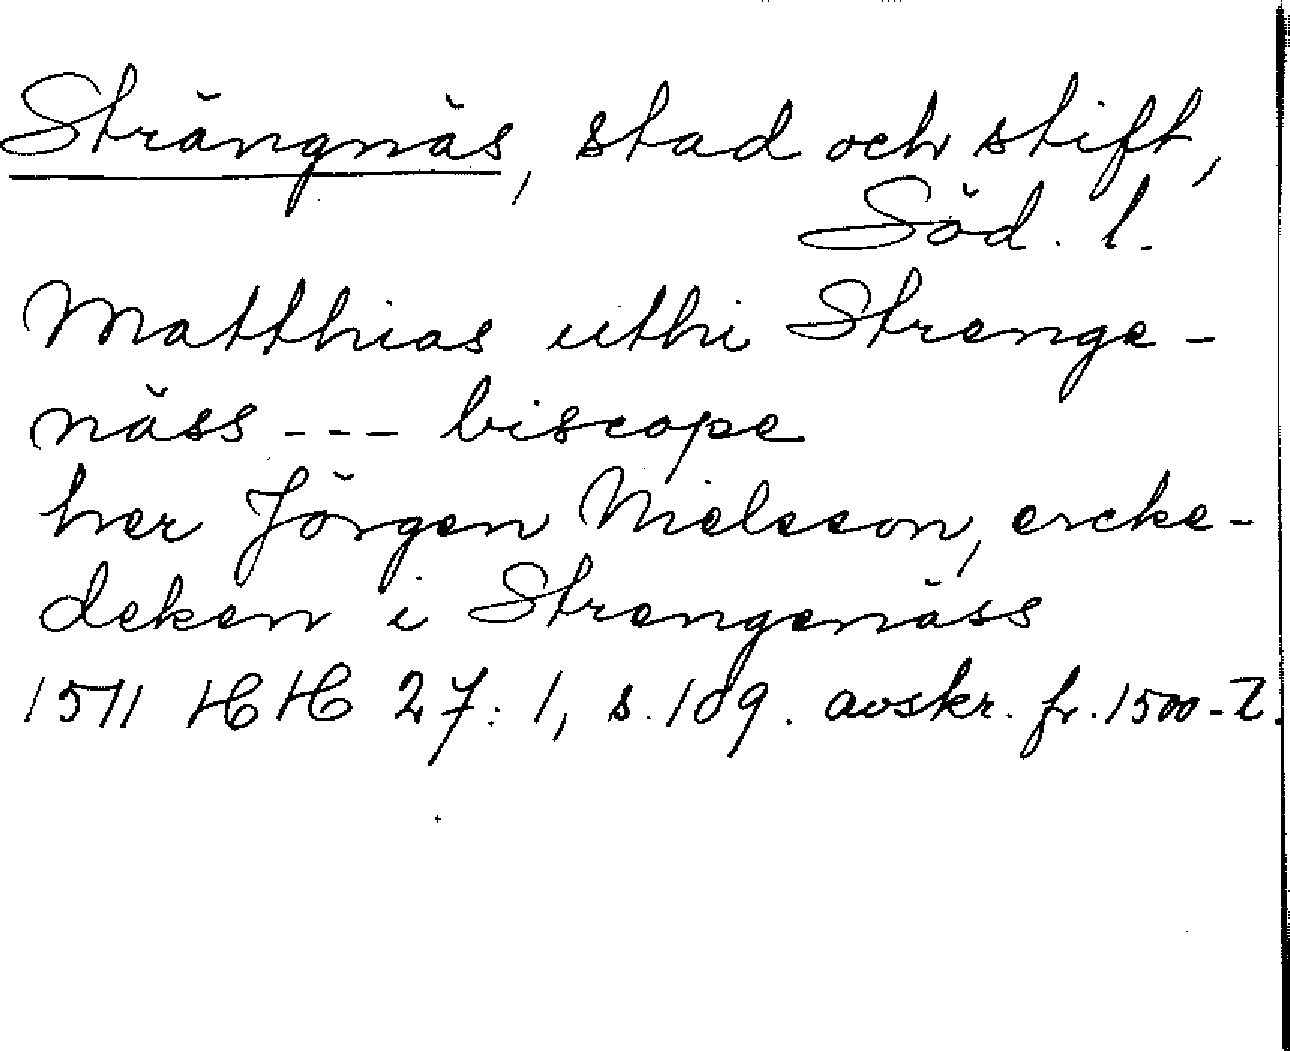 Strängnäs, stad och stift,
Söd. l.
Matthias uthi Strenge-
näss --- biscope
her Jörgen Nielsson, ercke-
deken i Strengenäss
1511 HH 27:1, s. 109. avskr. fr. 1500-t.